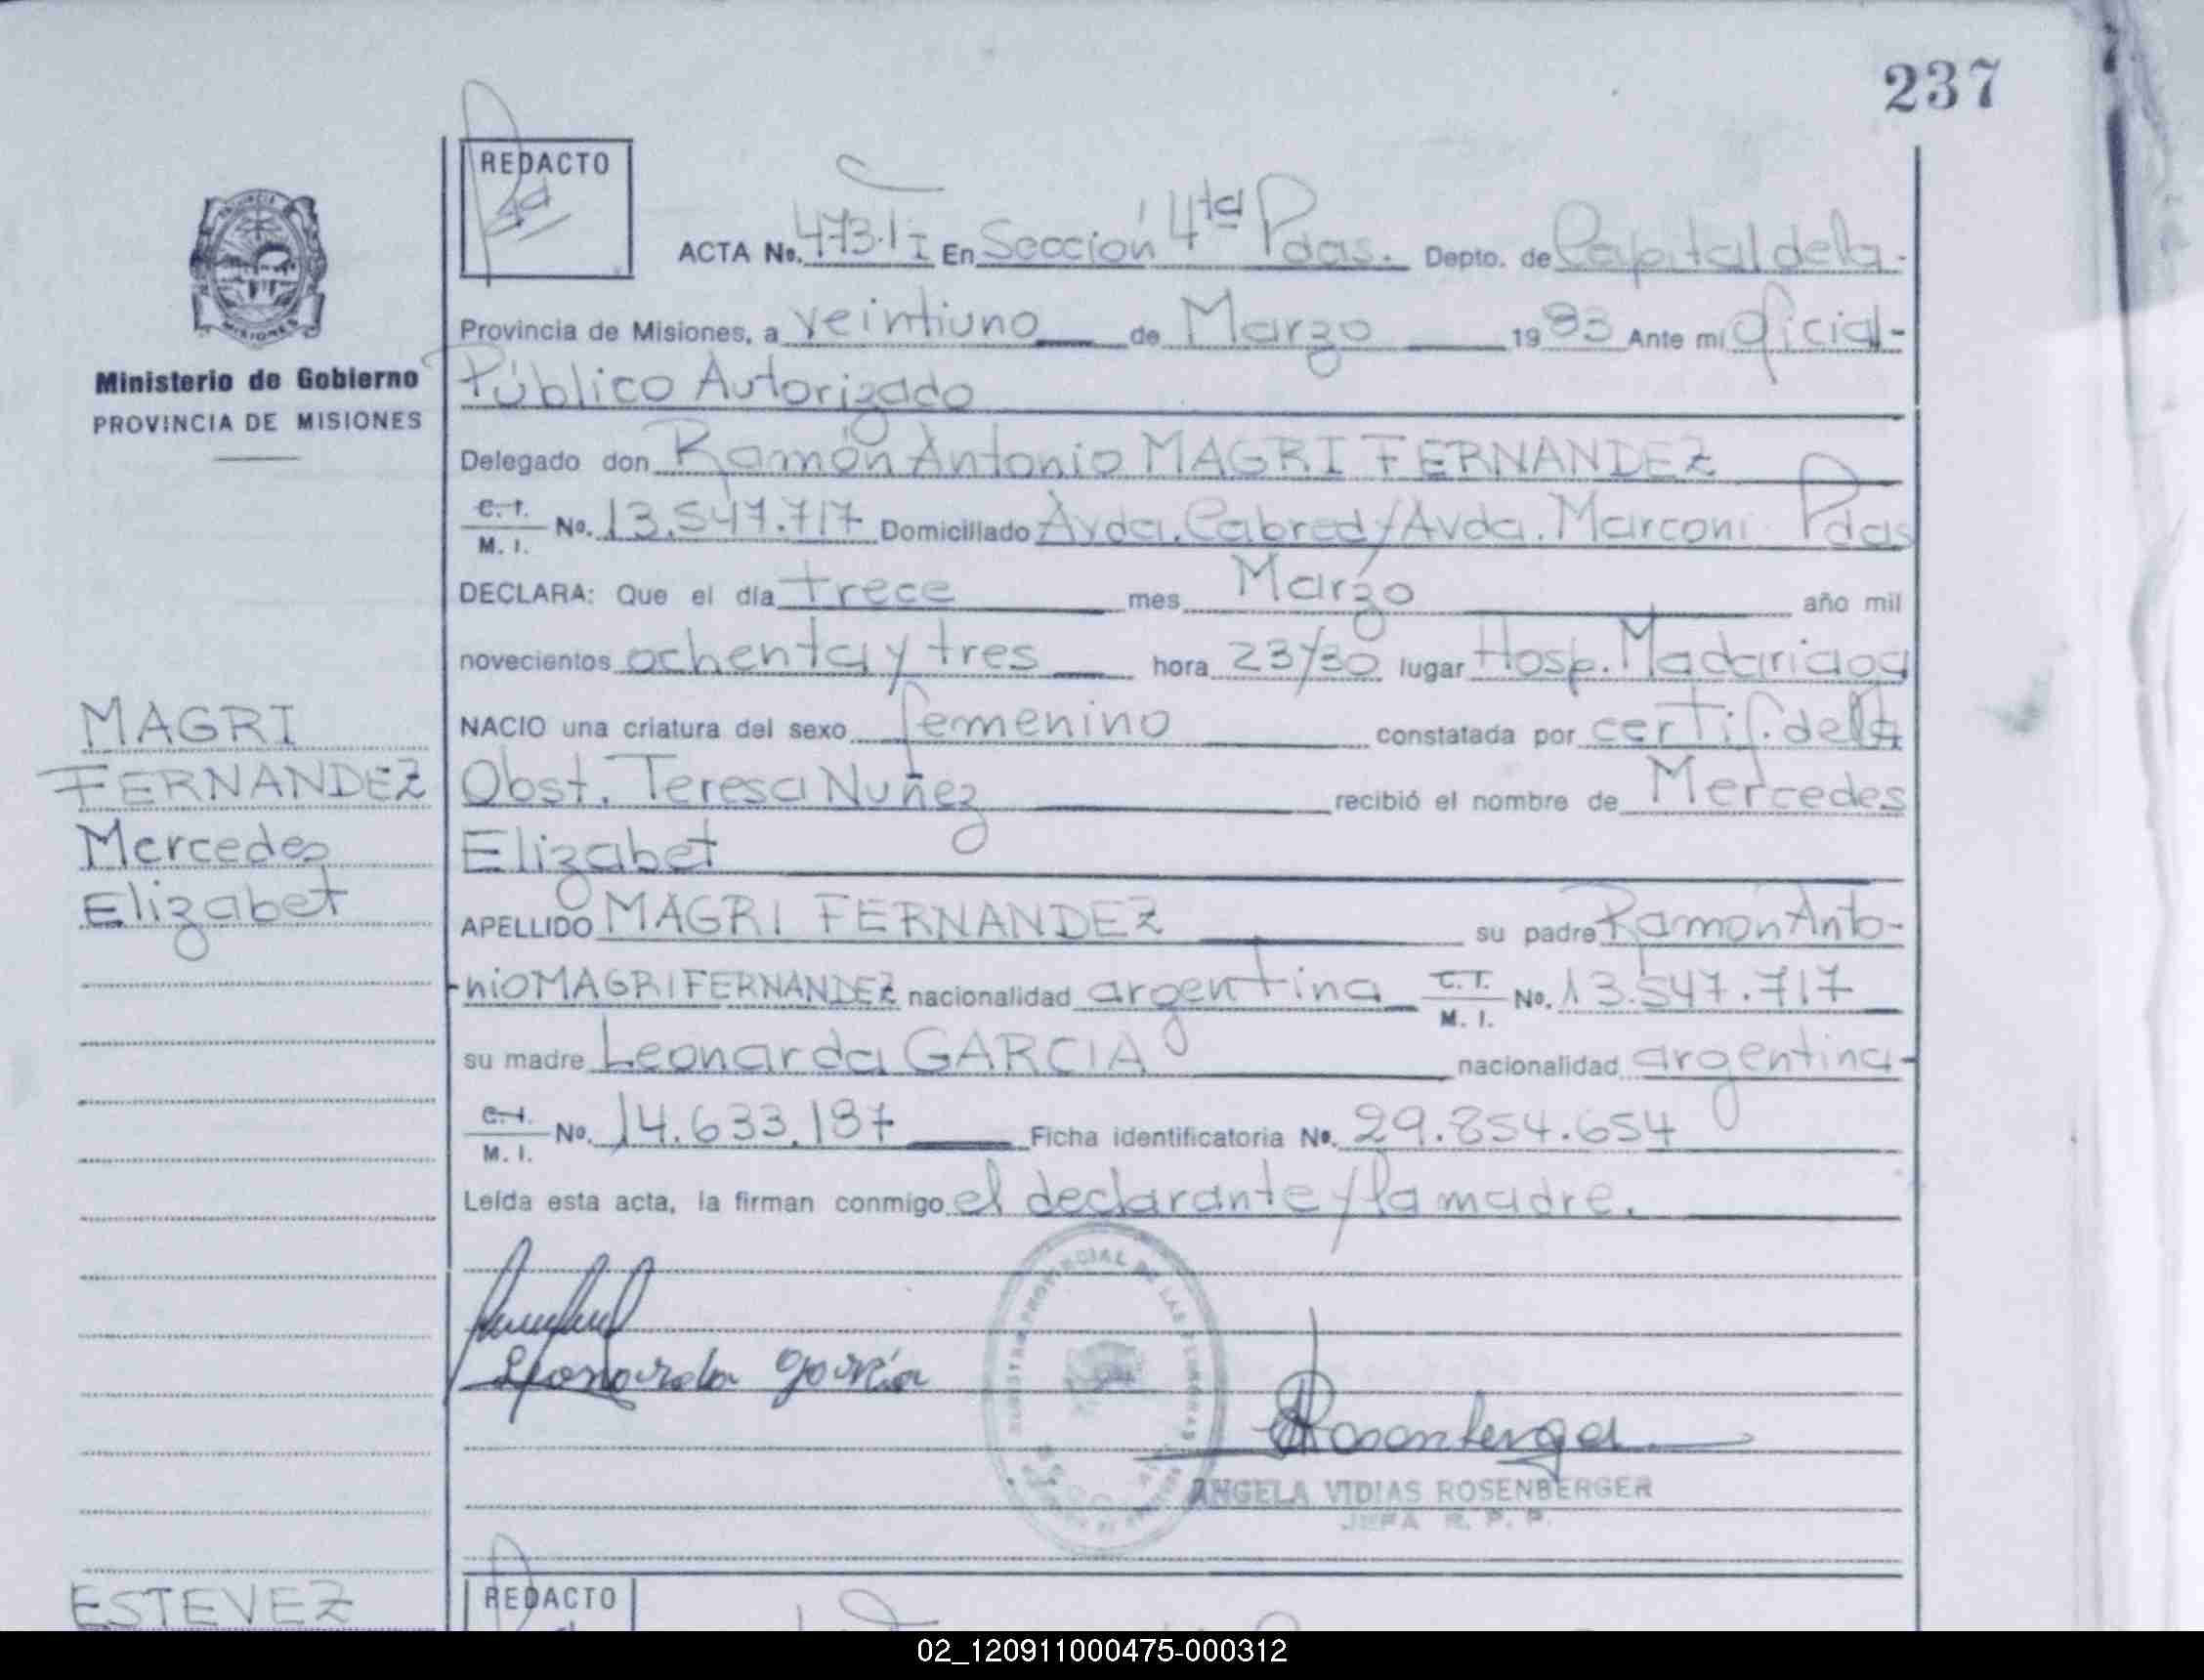 237
REDACTO
ACTA No. 473.I En Sección 4ta Pdas. Depto. de Capital dela
Provincia de Misiones, a veintiuno de Marzo 1983 Ante mí Oficial-
Ministerio de Gobierno
Público Autorizado
PROVINCIA DE MISIONES
Delegado don Ramón Antonio MAGRI FERNANDEZ
C. I. M. I. No. 13.547.717 Domiciliado Avda. Cabred y Avda. Marconi Pdas
DECLARA: Que el día trece mes Marzo año mil
novecientos ochenta y tres hora 23y30 lugar Hosp. Madariaga
MAGRI
NACIO una criatura del sexo femenino constatada por certif. dela
FERNANDEZ
Obst. Teresa Nuñez recibió el nombre de Mercedes
Mercedes
Elizabet
Elizabet
APELLIDO MAGRI FERNANDEZ su padre Ramón Anto-
-nio MAGRI FERNANDEZ nacionalidad argentina C. I. M. I. No. 13.547.717
su madre Leonarda GARCIA nacionalidad argentina-
C. I. M. I. No. 14.633.187 Ficha identificatoria No. 29.854.654
Leída esta acta, la firman conmigo el declarante y la madre.
Leonarda García
Rosenberger
ANGELA VIDIAS ROSENBERGER
JEFA R. P. P.
ESTEVEZ
REDACTO
02_120911000475-000312